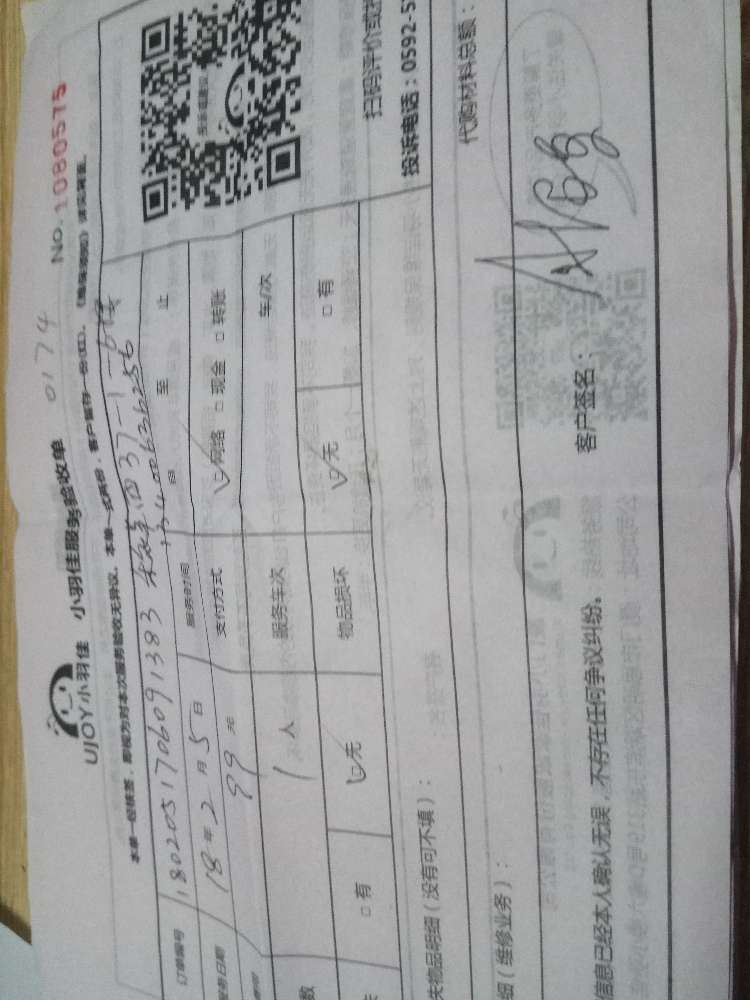 UJOY小羽佳 小羽佳服务验收单 0174 No.1080575
本单一经核签，即视为对本次服务验收无异议。本单一式两份，客户留存一份(红)。
订单编号 1802051706091383
服务日期 18年2月5日 服务时间 自 至 止
99元 支付方式 网络 □现金 □转账
数 1人 服务车次 车/次
□有 无 物品损坏 无 □有
失物品明细（没有可不填）：
扫码评价或投
投诉电话：0592-5
细（维修业务）：
代购材料总额：
信息已经本人确认无误，不存在任何争议纠纷。 客户签名：